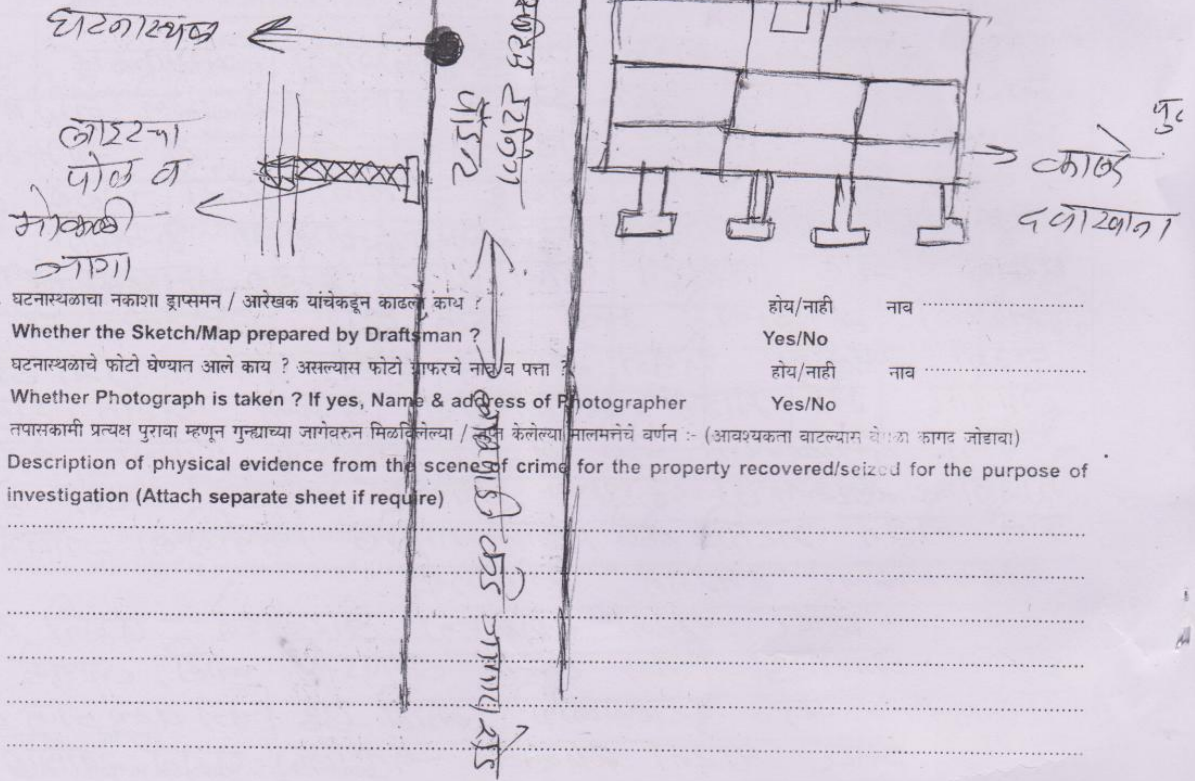 घटनास्थळ
लाइटचा
पोल व
मोकळी
जागा
पॉइंट
काळे
दवाखाना
घटनास्थळाचा नकाशा ड्राप्समन / आरेखक यांचेकडून काढला काय ? होय/नाही नाव
Whether the Sketch/Map prepared by Draftsman ? Yes/No
घटनास्थळाचे फोटो घेण्यात आले काय ? असल्यास फोटो ग्राफरचे नांव व पत्ता ? होय/नाही नाव
Whether Photograph is taken ? If yes, Name & address of Photographer Yes/No
तपासकामी प्रत्यक्ष पुरावा म्हणून गुन्ह्याच्या जागेवरुन मिळविलेल्या / केलेल्या मालमत्तेचे वर्णन :- (आवश्यकता वाटल्यास वेगळा कागद जोडावा)
Description of physical evidence from the scene of crime for the property recovered/seized for the purpose of
investigation (Attach separate sheet if require)
रोड